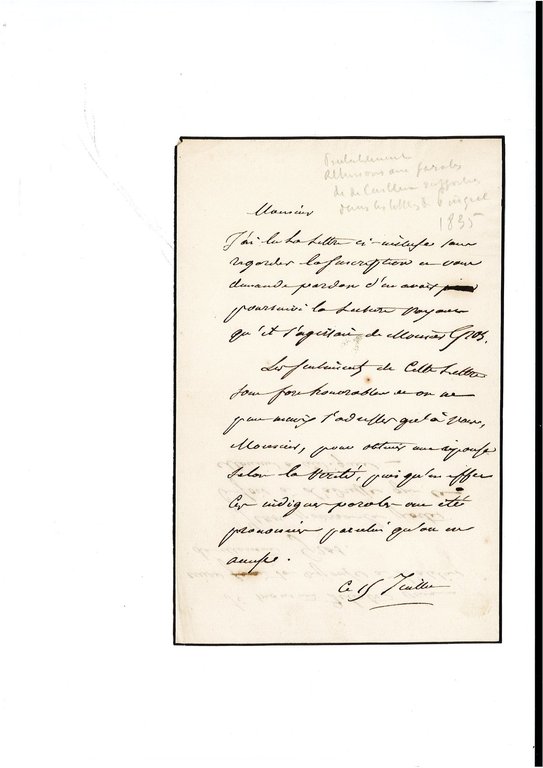 allusions aux paroles
de de Cailleux rapportées
dans les lettres de
1835
Monsieur
J'ai lu la lettre ci-incluse sans
regarder la suscription et vous
demande pardon d'en avoir
poursuivi la lecture voyant
qu'il s'agissait de Monsieur Gros.
Les sentiments de cette lettre
sont fort honorables et on ne
peut mieux s'adresser qu'à vous,
Monsieur, pour obtenir une réponse
selon la vérité, puis qu'en effet
ces indignes paroles ont été
prononcées par celui qu'on en
accuse.
Ce 15 Juillet